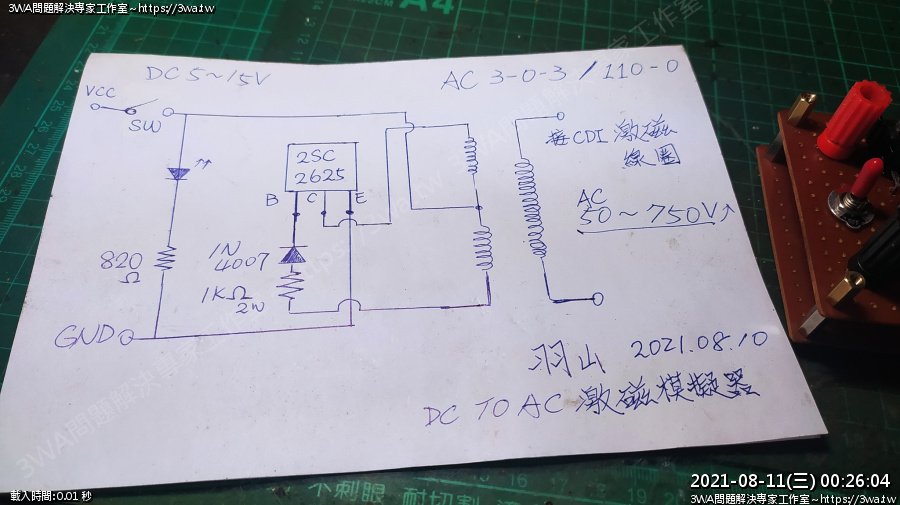 3WA問題解決專家工作室~https://3wa.tw
A4
DC 5~15V
AC 3-0-3 / 110-0
VCC
SW
2SC
2625
B
C
E
820
Ω
1N
4007
1KΩ
2W
GND
接CDI 激磁
線圈
AC
50~750V↑
羽山 2021.08.10
DC TO AC 激磁模擬器
不刺眼 耐切割
載入時間:0.01 秒
2021-08-11(三) 00:26:04
3WA問題解決專家工作室~https://3wa.tw